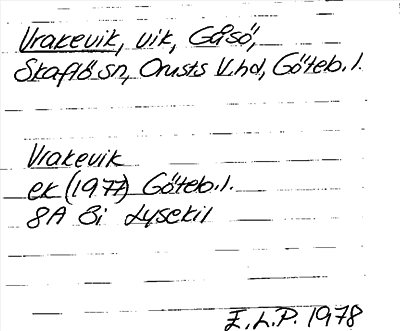 Vrakevik, vik, Gåsö,
Skaftö sn, Orusts V.hd, Göteb.l.
Vrakevik
ek (1977) Göteb.l.
8A 8i Lysekil
E.L.P. 1978